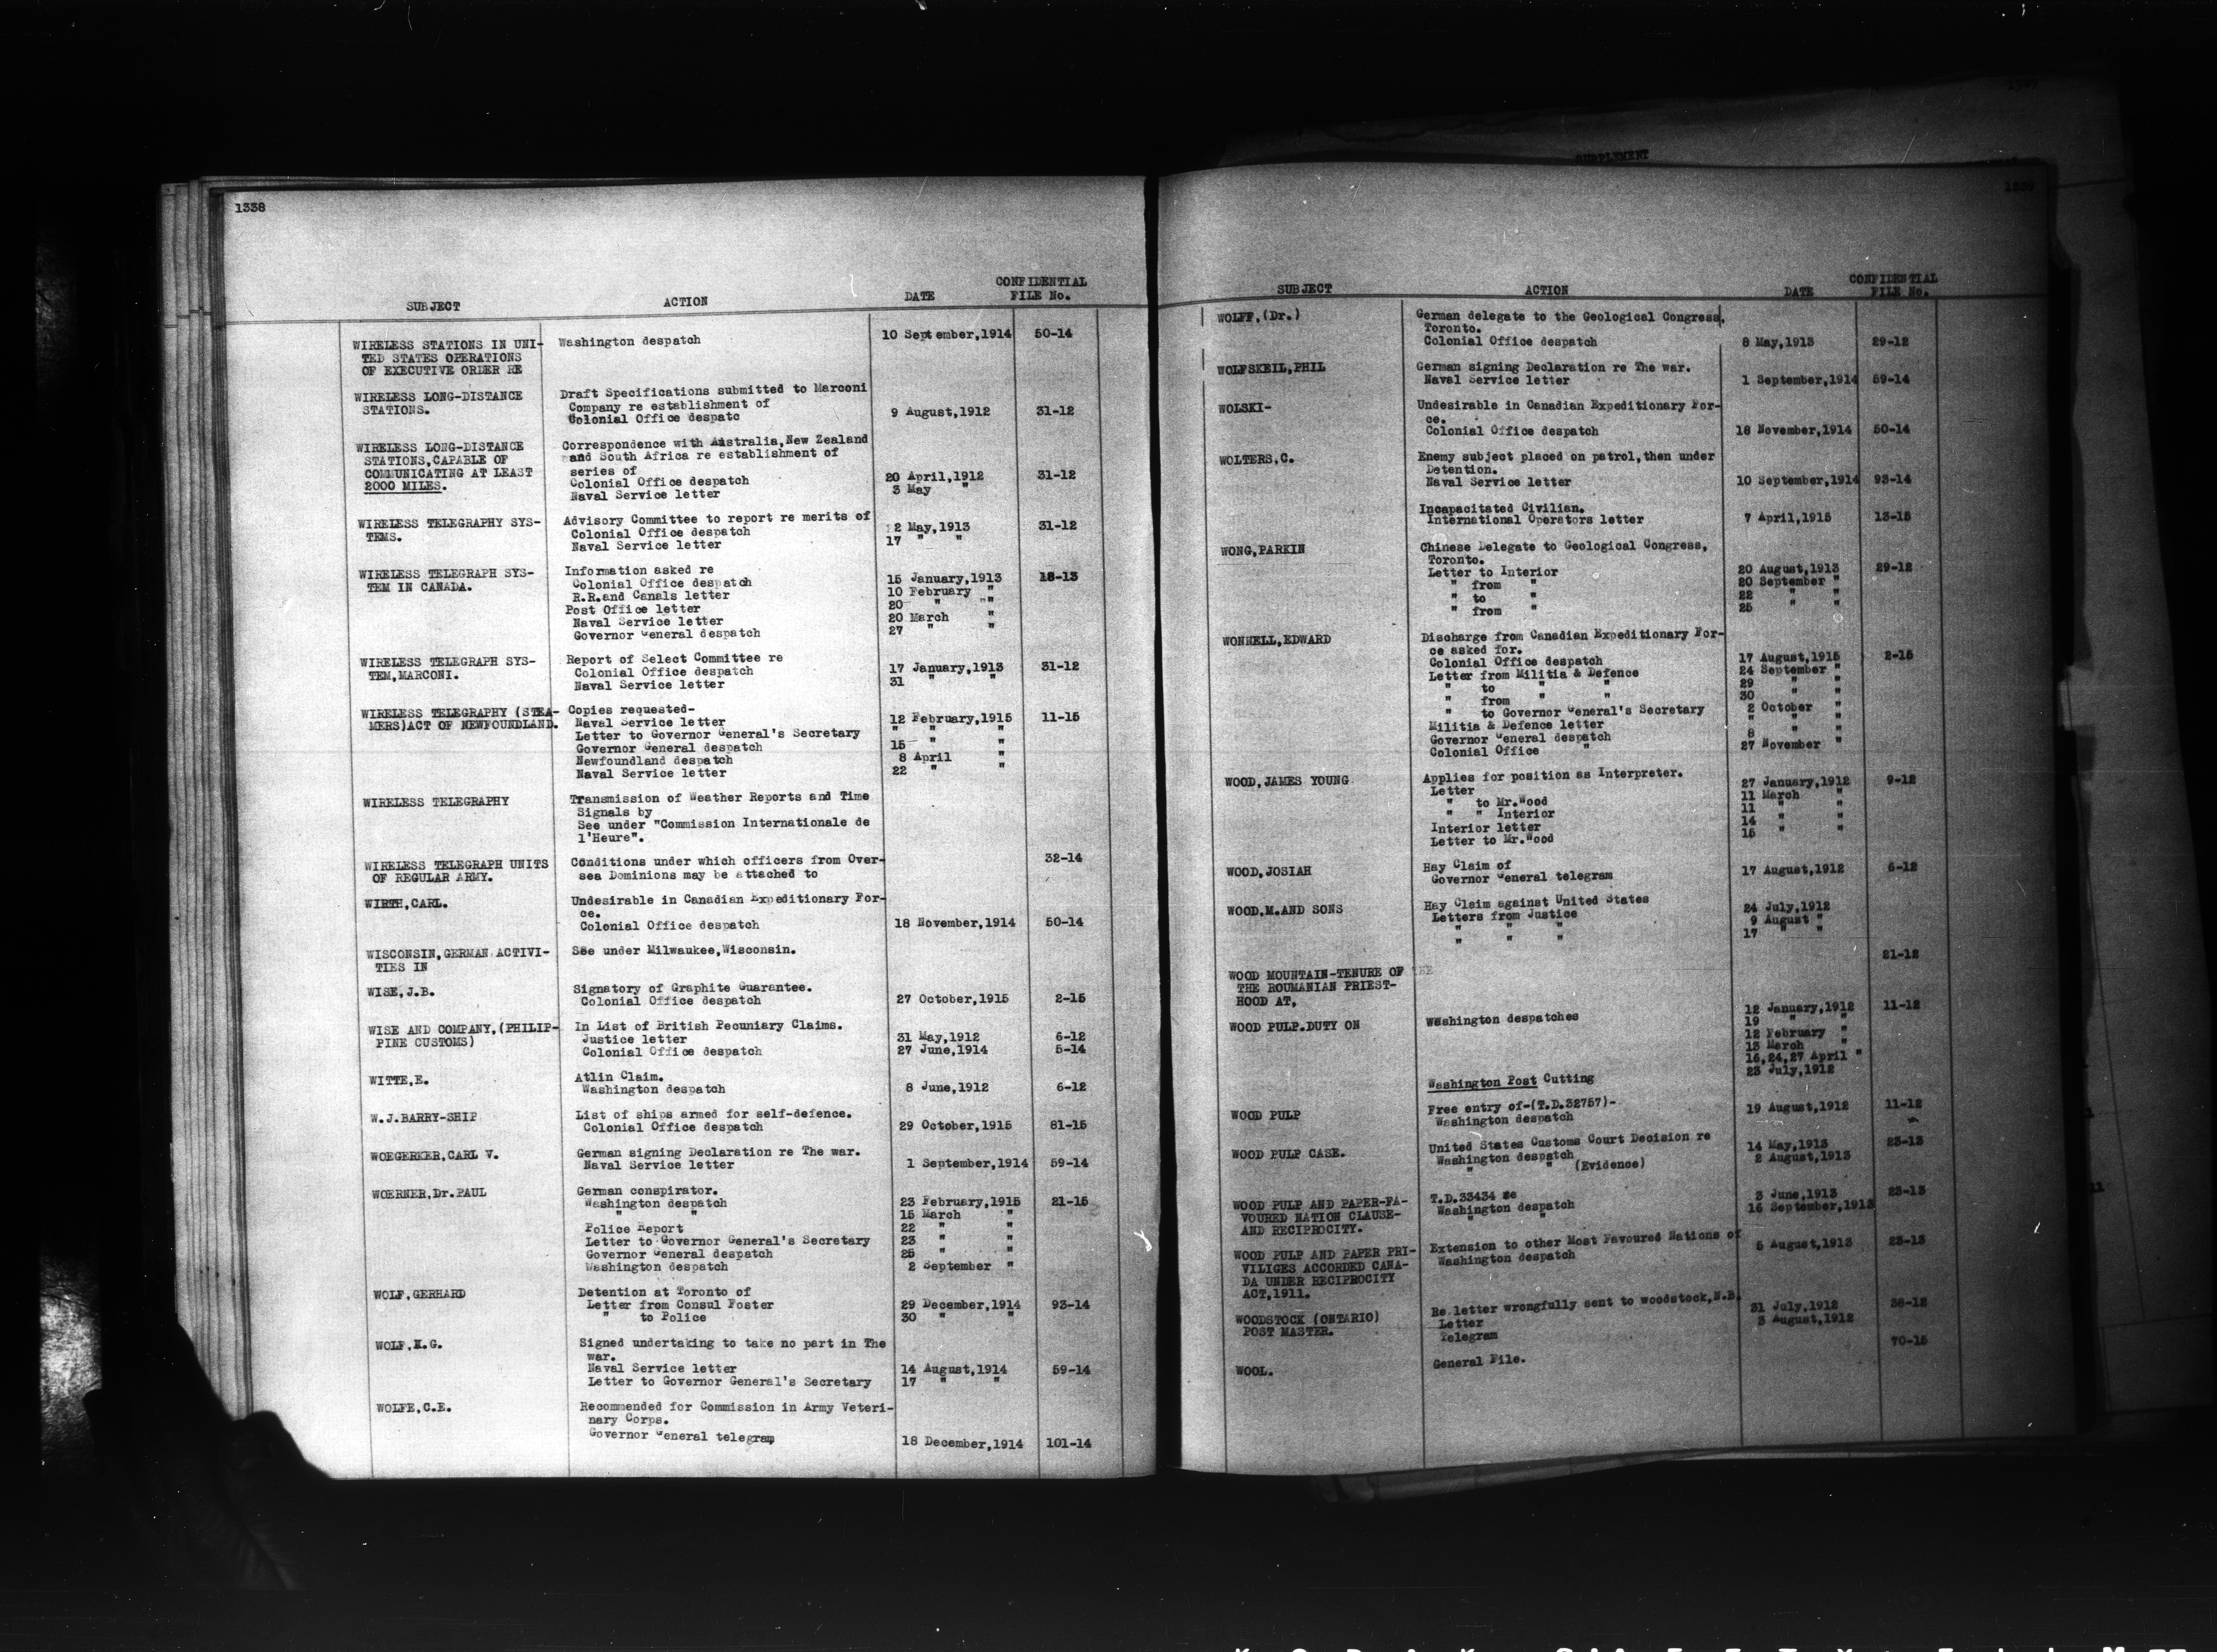 1338
SUBJECT ACTION DATE CONFIDENTIAL FILE No.
WIRELESS STATIONS IN UNI- Washington despatch 10 September,1914 50-14
TED STATES OPERATIONS
OF EXECUTIVE ORDER RE
WIRELESS LONG-DISTANCE Draft Specifications submitted to Marconi
STATIONS. Company re establishment of 9 August,1912 31-12
Colonial Office despatc
WIRELESS LONG-DISTANCE Correspondence with Australia,New Zealand
STATIONS,CAPABLE OF and South Africa re establishment of
COMMUNICATING AT LEAST series of
2000 MILES. Colonial Office despatch 20 April,1912 31-12
Naval Service letter 3 May "
WIRELESS TELEGRAPHY SYS- Advisory Committee to report re merits of
TEMS. Colonial Office despatch 2 May,1913 31-12
Naval Service letter 17 " "
WIRELESS TELEGRAPH SYS- Information asked re
TEM IN CANADA. Colonial Office despatch 15 January,1913 18-13
R.R.and Canals letter 10 February "
Post Office letter 20 " "
Naval Service letter 20 March "
Governor General despatch 27 " "
WIRELESS TELEGRAPH SYS- Report of Select Committee re
TEM,MARCONI. Colonial Office despatch 17 January,1913 31-12
Naval Service letter 31 " "
WIRELESS TELEGRAPHY (STEA- Copies requested-
MERS)ACT OF NEWFOUNDLAND. Naval Service letter 12 February,1915 11-15
Letter to Governor General's Secretary " " "
Governor General despatch 15 " "
Newfoundland despatch 8 April "
Naval Service letter 22 " "
WIRELESS TELEGRAPHY Transmission of Weather Reports and Time
Signals by
See under "Commission Internationale de
l'Heure".
WIRELESS TELEGRAPH UNITS Conditions under which officers from Over- 32-14
OF REGULAR ARMY. sea Dominions may be attached to
WIRTH,CARL. Undesirable in Canadian Expeditionary For-
ce.
Colonial Office despatch 18 November,1914 50-14
WISCONSIN,GERMAN ACTIVI- See under Milwaukee,Wisconsin.
TIES IN
WISE,J.B. Signatory of Graphite Guarantee.
Colonial Office despatch 27 October,1915 2-15
WISE AND COMPANY,(PHILIP- In List of British Pecuniary Claims.
PINE CUSTOMS) Justice letter 31 May,1912 6-12
Colonial Office despatch 27 June,1914 5-14
WITTE,E. Atlin Claim.
Washington despatch 8 June,1912 6-12
W.J.BARRY-SHIP List of ships armed for self-defence.
Colonial Office despatch 29 October,1915 81-15
WOEGERKER,CARL V. German signing Declaration re The war.
Naval Service letter 1 September,1914 59-14
WOERNER,Dr.PAUL German conspirator.
Washington despatch 23 February,1915 21-15
" " 15 March "
Police Report 22 " "
Letter to Governor General's Secretary 23 " "
Governor General despatch 25 " "
Washington despatch 2 September "
WOLF,GERHARD Detention at Toronto of
Letter from Consul Foster 29 December,1914 93-14
" to Police 30 " "
WOLF,H.G. Signed undertaking to take no part in The
war.
Naval Service letter 14 August,1914 59-14
Letter to Governor General's Secretary 17 " "
WOLFE,C.E. Recommended for Commission in Army Veteri-
nary Corps.
Governor General telegram 18 December,1914 101-14
SUPPLEMENT
1339
SUBJECT ACTION DATE CONFIDENTIAL FILE No.
WOLFF,(Dr.) German delegate to the Geological Congress,
Toronto.
Colonial Office despatch 8 May,1913 29-12
WOLFSKEIL,PHIL German signing Declaration re The war.
Naval Service letter 1 September,1914 59-14
WOLSKI- Undesirable in Canadian Expeditionary For-
ce.
Colonial Office despatch 18 November,1914 50-14
WOLTERS,C. Enemy subject placed on patrol,then under
Detention.
Naval Service letter 10 September,1914 93-14
Incapacitated Civilian.
International Operators letter 7 April,1915 13-15
WONG,PARKIN Chinese Delegate to Geological Congress,
Toronto.
Letter to Interior 20 August,1913 29-12
" from " 20 September "
" to " 22 " "
" from " 25 " "
WONNELL,EDWARD Discharge from Canadian Expeditionary For-
ce asked for.
Colonial Office despatch 17 August,1915 2-15
Letter from Militia & Defence 24 September "
" to " " 29 " "
" from " " 30 " "
" to Governor General's Secretary 2 October "
Militia & Defence letter " " "
Governor General despatch 8 " "
Colonial Office " 27 November "
WOOD,JAMES YOUNG Applies for position as Interpreter.
Letter 27 January,1912 9-12
" to Mr.Wood 11 March "
" " Interior 11 " "
Interior letter 14 " "
Letter to Mr.Wood 15 " "
WOOD,JOSIAH Hay Claim of
Governor General telegram 17 August,1912 6-12
WOOD,M.AND SONS Hay Claim against United States
Letters from Justice 24 July,1912
" " " 9 August "
" " " 17 " "
21-12
WOOD MOUNTAIN-TENURE OF THE
THE ROUMANIAN PRIEST-
HOOD AT,
WOOD PULP.DUTY ON Washington despatches 12 January,1912 11-12
19 " "
12 February "
13 March "
16,24,27 April "
23 July,1912
Washington Post Cutting
WOOD PULP Free entry of-(T.D.32757)-
Washington despatch 19 August,1912 11-12
WOOD PULP CASE. United States Customs Court Decision re
Washington despatch 14 May,1913 23-13
" " (Evidence) 2 August,1913
WOOD PULP AND PAPER-FA- T.D.33434 re
VOURED NATION CLAUSE- Washington despatch 3 June,1913 23-13
AND RECIPROCITY. " " 16 September,1913
WOOD PULP AND PAPER PRI- Extension to other Most Favoured Nations of
VILIGES ACCORDED CANA- Washington despatch 5 August,1913 23-13
DA UNDER RECIPROCITY
ACT,1911.
WOODSTOCK (ONTARIO) Re letter wrongfully sent to woodstock,N.B.
POST MASTER. Letter 31 July,1912 38-12
Telegram 3 August,1912
WOOL. General File. 70-15